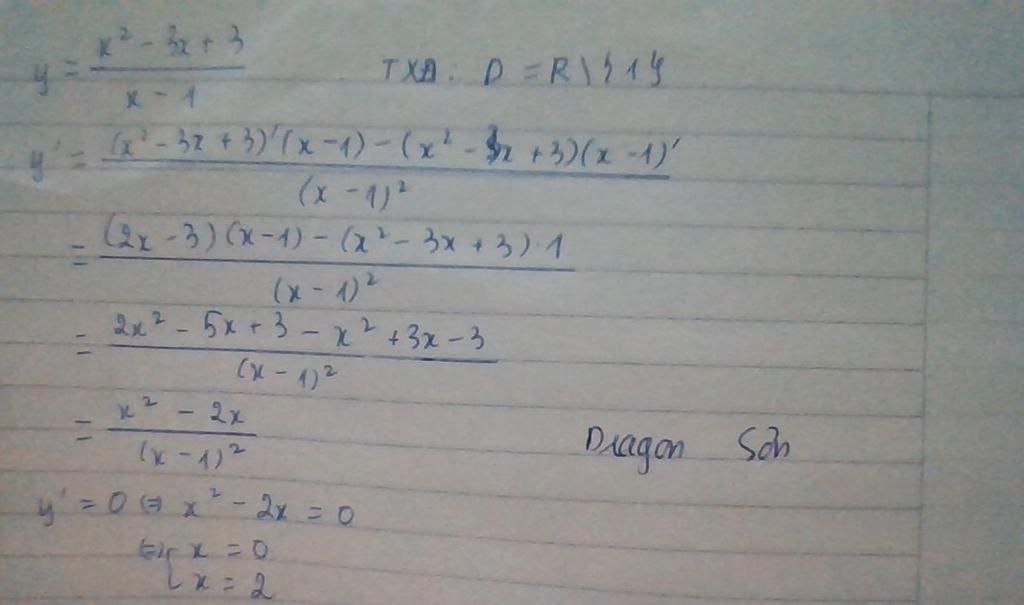 y = \frac{x² - 3x + 3}{x - 1} TXĐ. D = R \ {1}
y' = \frac{(x² - 3x + 3)'(x - 1) - (x² - 3x + 3)(x - 1)'}{(x - 1)²}
= \frac{(2x - 3)(x - 1) - (x² - 3x + 3) · 1}{(x - 1)²}
= \frac{2x² - 5x + 3 - x² + 3x - 3}{(x - 1)²}
= \frac{x² - 2x}{(x - 1)²} Dragon Son
y' = 0 ⇔ x² - 2x = 0
⇔ [ x = 0
x = 2